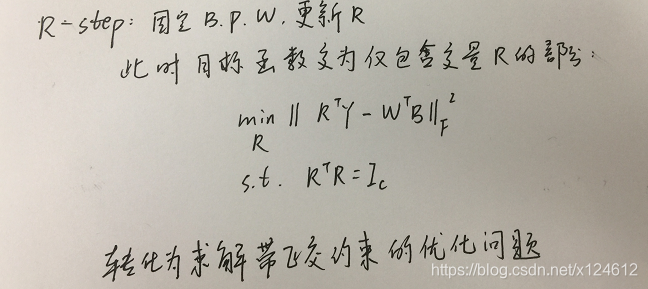 R-step: 固定 B.P.W.更新R
此时目标函数变为仅包含变量R的部分:
min ‖ RᵀY - WᵀB‖_F²
R
s.t. RᵀR = I_c
转化为求解带正交约束的优化问题
https://blog.csdn.net/x124612